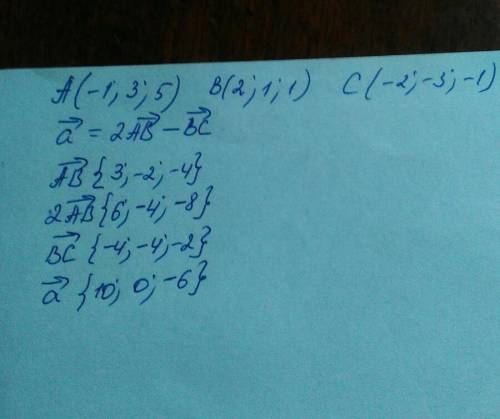 A(-1; 3; 5) B(2; 1; 1) C(-2; -3; -1)
a⃗ = 2AB⃗ - BC⃗
AB⃗ {3; -2; -4}
2AB⃗ {6; -4; -8}
BC⃗ {-4; -4; -2}
a⃗ {10; 0; -6}